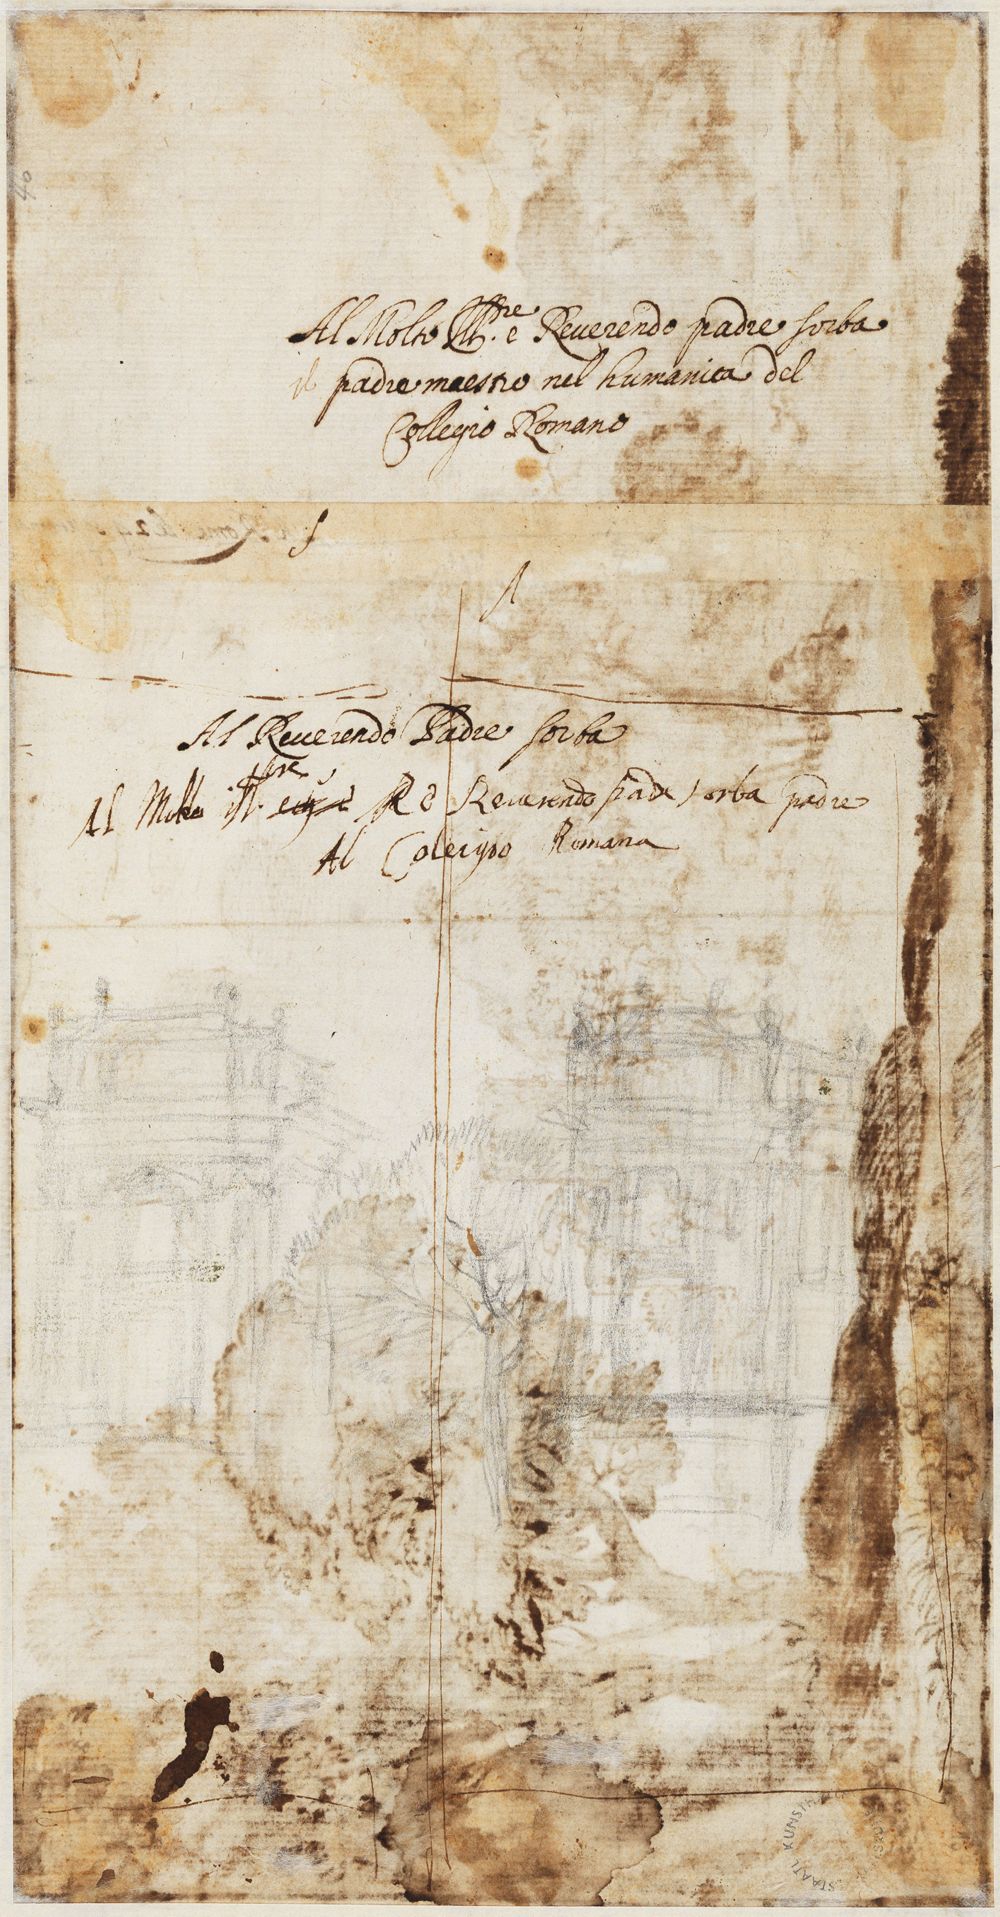 40
Al Molto Ill.re e Reuerendo padre sorba
il padre maestro nel humanita del
Collegio Romano
Al Reuerendo Padre sorba
Al Molto Ill.re R e Reuerendo pade sorba padre
Al Colerigio Romana
STAATL KUNSTH